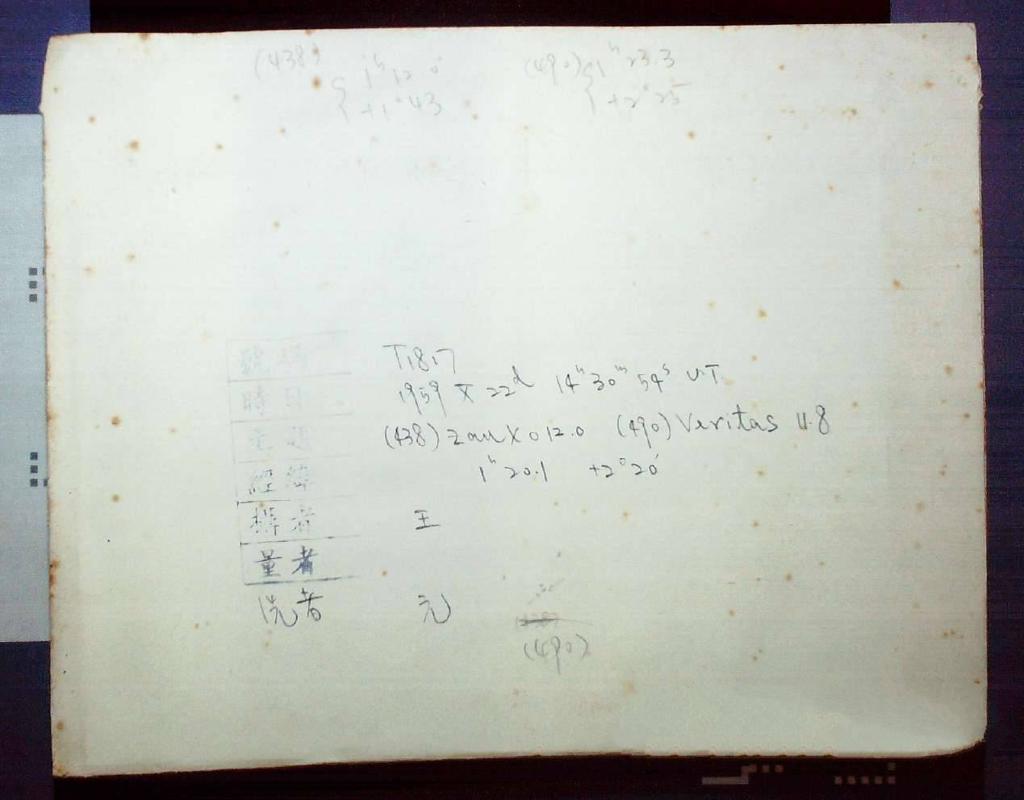 (438) { 1ʰ 12.0 (490) { 1ʰ 23.3
+1°43 +2°25
號碼 T1817
時日 1959 X 22ᵈ 14ʰ30ᵐ54ˢ U.T.
(438) Zeuxo 12.0 (490) Veritas 11.8
經緯 1ʰ20.1 +2°20'
攝者 王
量者
洗者 元
(490)